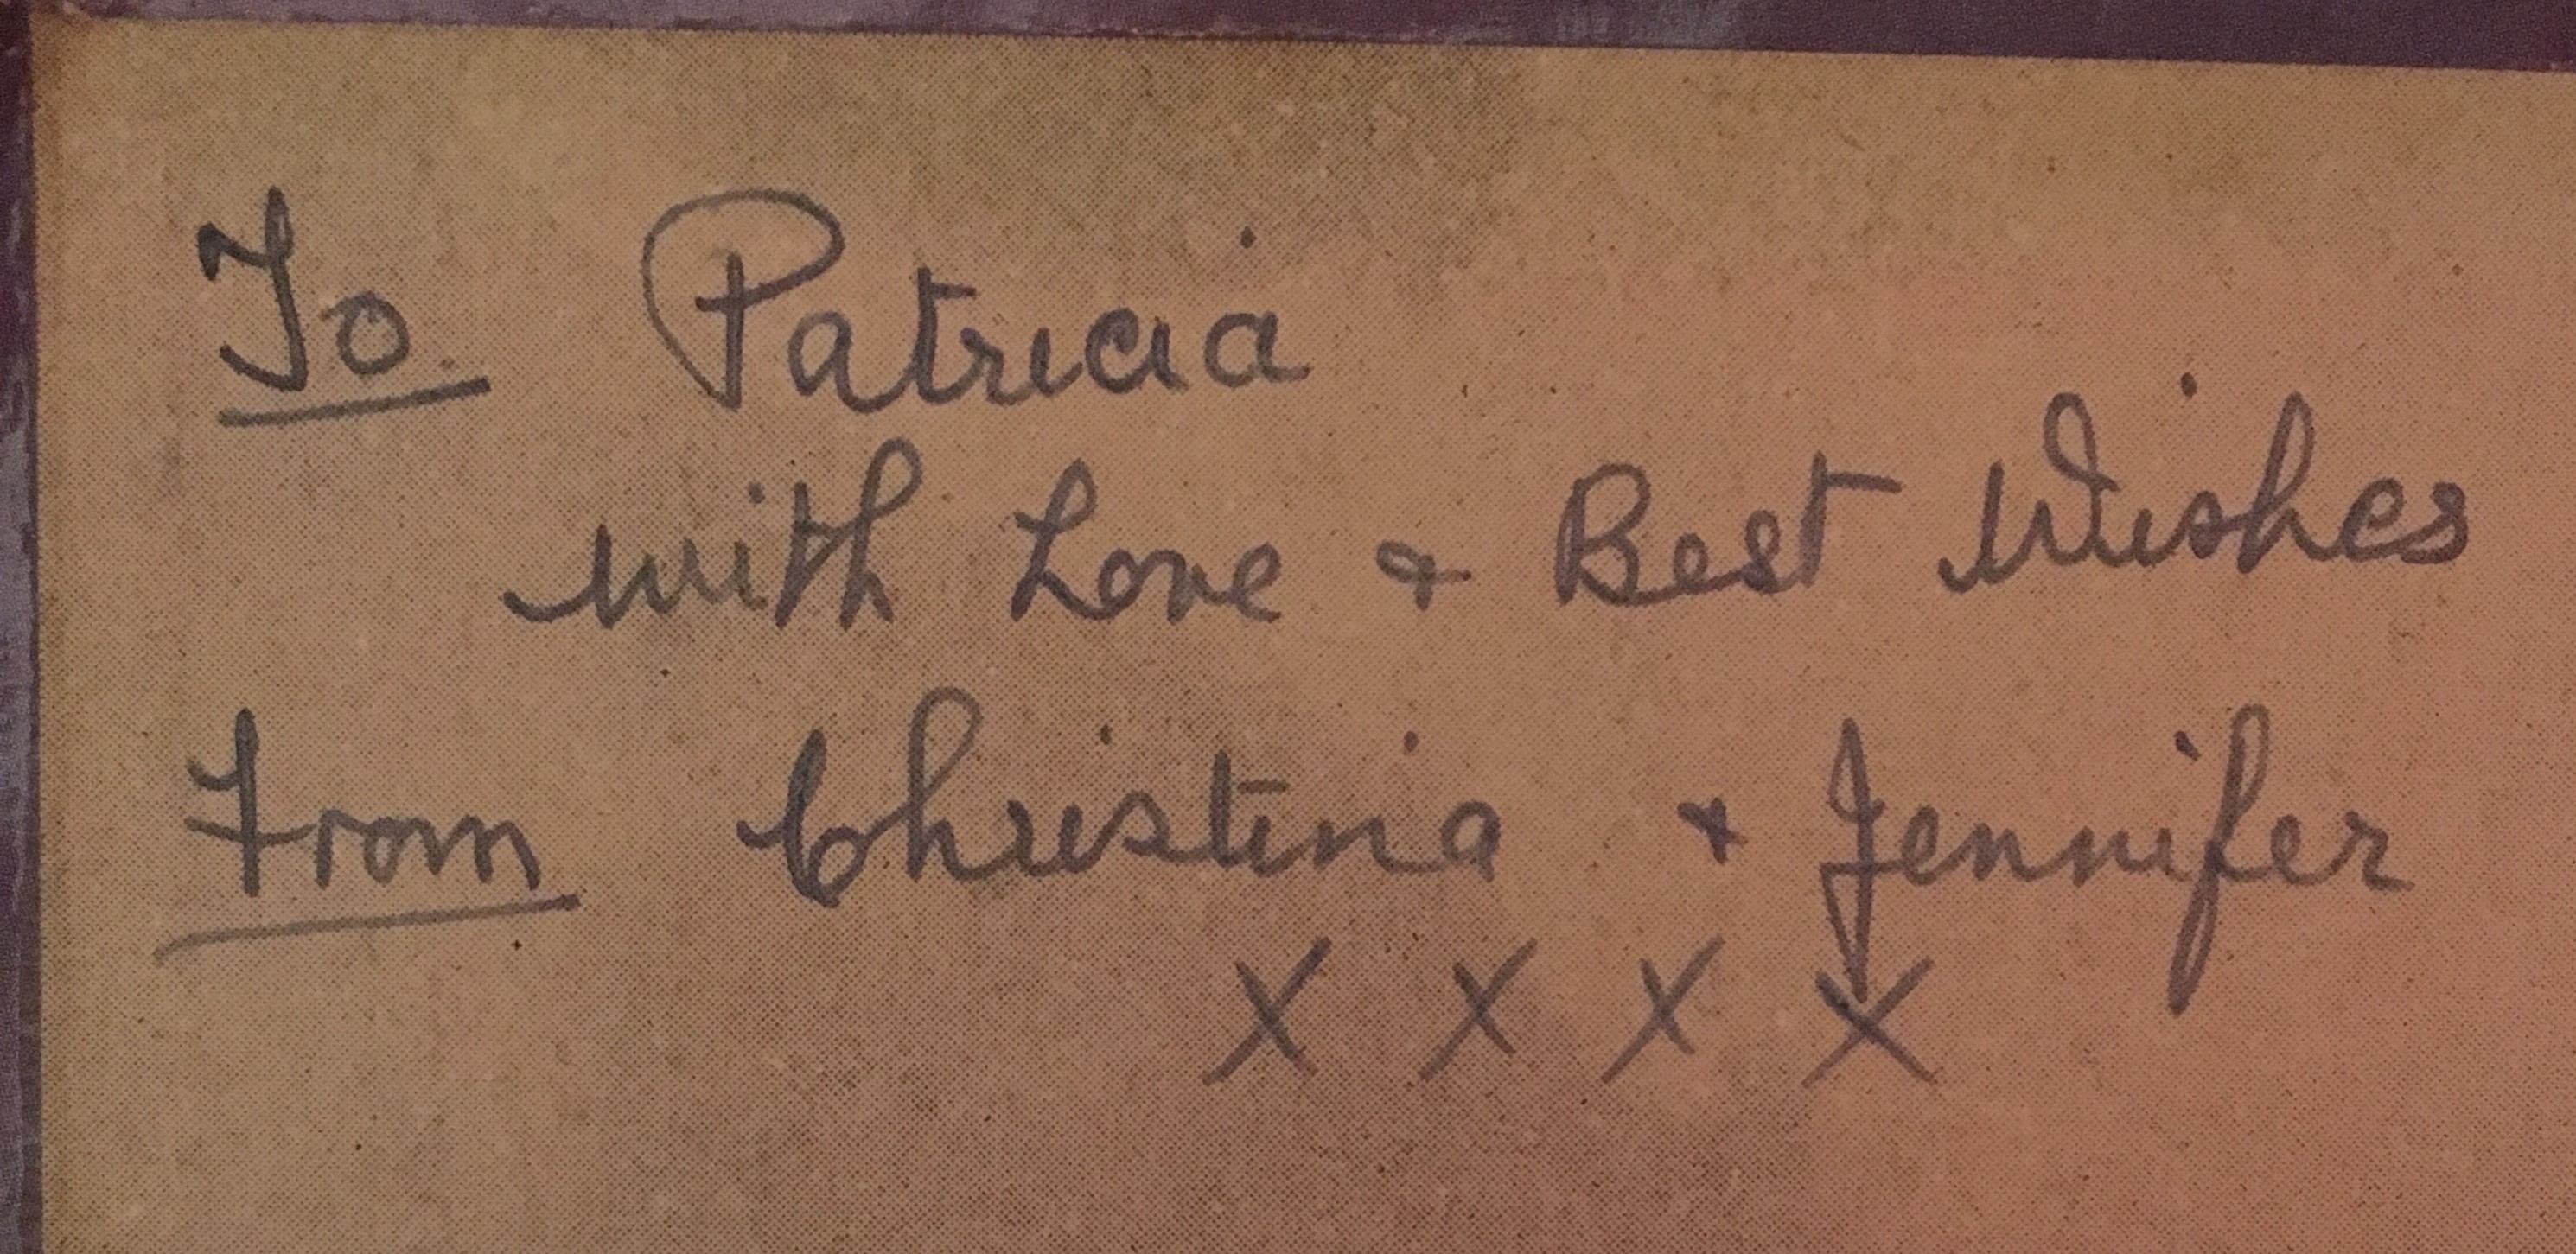 To Patricia
with Love & Best Wishes
From Christina & Jennifer
X X X X